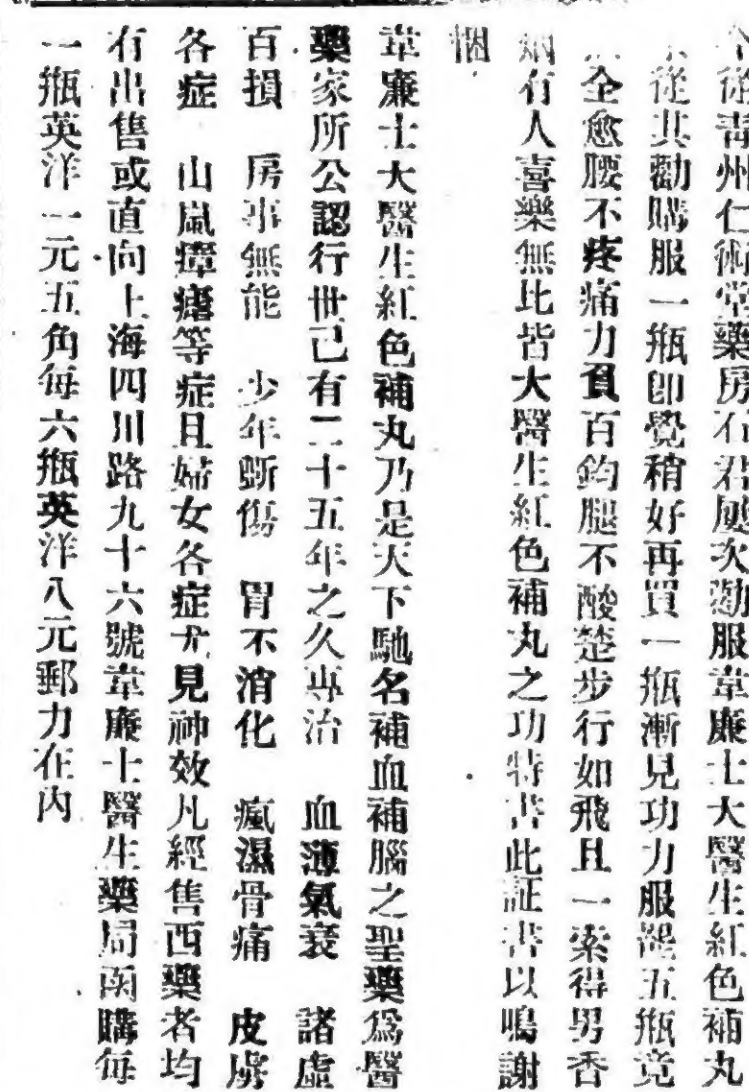 從青州仁術堂藥房石君屢次勸服韋廉士大醫生紅色補丸
從其勸購服一瓶卽覺稍好再買一瓶漸見功力服罄五瓶竟
全愈腰不疼痛力負百鈞腿不酸楚步行如飛且一索得男香
烟有人喜樂無比皆大醫生紅色補丸之功特書此証書以鳴謝
悃
韋廉士大醫生紅色補丸乃是天下馳名補血補腦之聖藥爲醫
藥家所公認行世已有二十五年之久專治　血薄氣衰　諸虛
百損　房事無能　少年斲傷　胃不消化　瘋濕骨痛　皮膚
各症　山嵐瘴瘧等症且婦女各症尤見神效凡經售西藥者均
有出售或直向上海四川路九十六號韋廉士醫生藥局函購每
一瓶英洋一元五角每六瓶英洋八元郵力在內